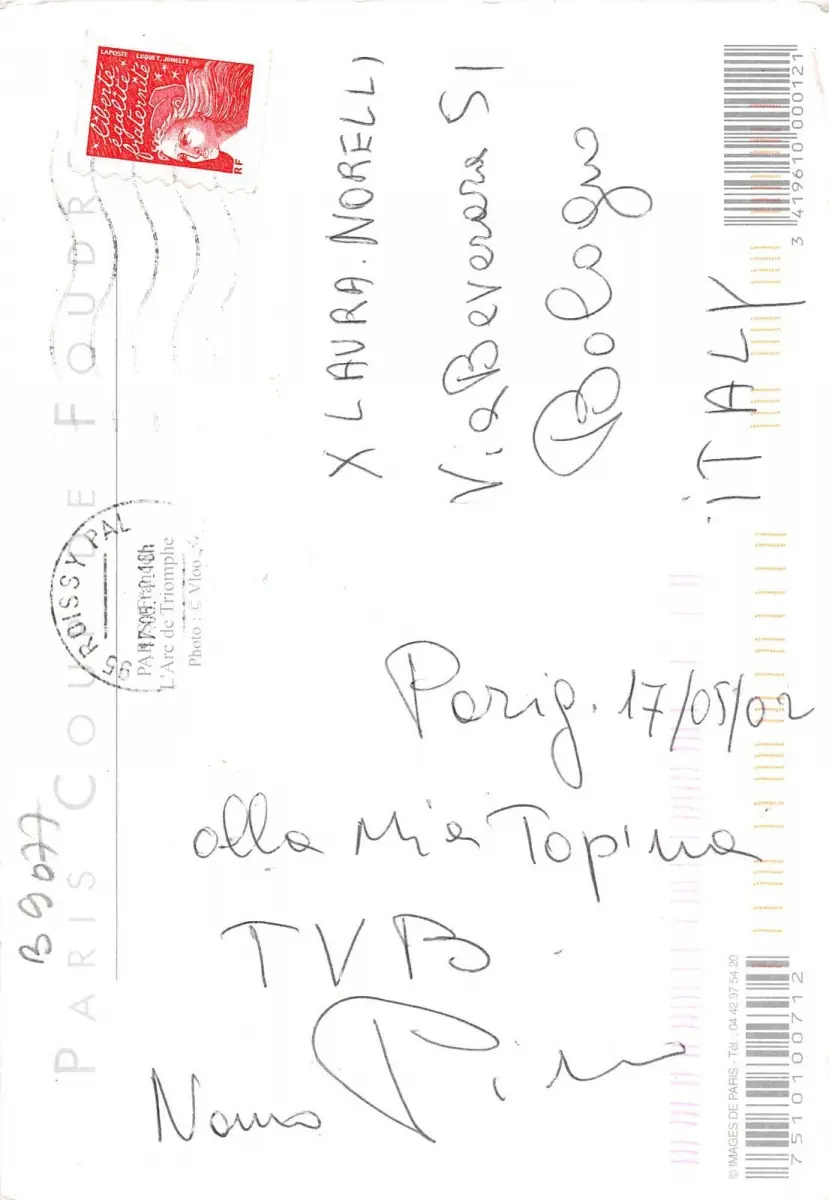 Parig. 17/05/02
alla Mia Topina
TVB
Nonno Pino
X LAURA. NORELLI
Via Beverara 51
Bologna
iTALY
LAPOSTE LUQUET. JUMELET
liberté
égalité
fraternité
RF
95 ROISSY
L'Arc de Triomphe
Photo : C Vloo
PARIS COUP DE FOUDRE
B9077
© IMAGES DE PARIS - Tél. : 04 42 97 54 20
7510100712
3 419610 000121